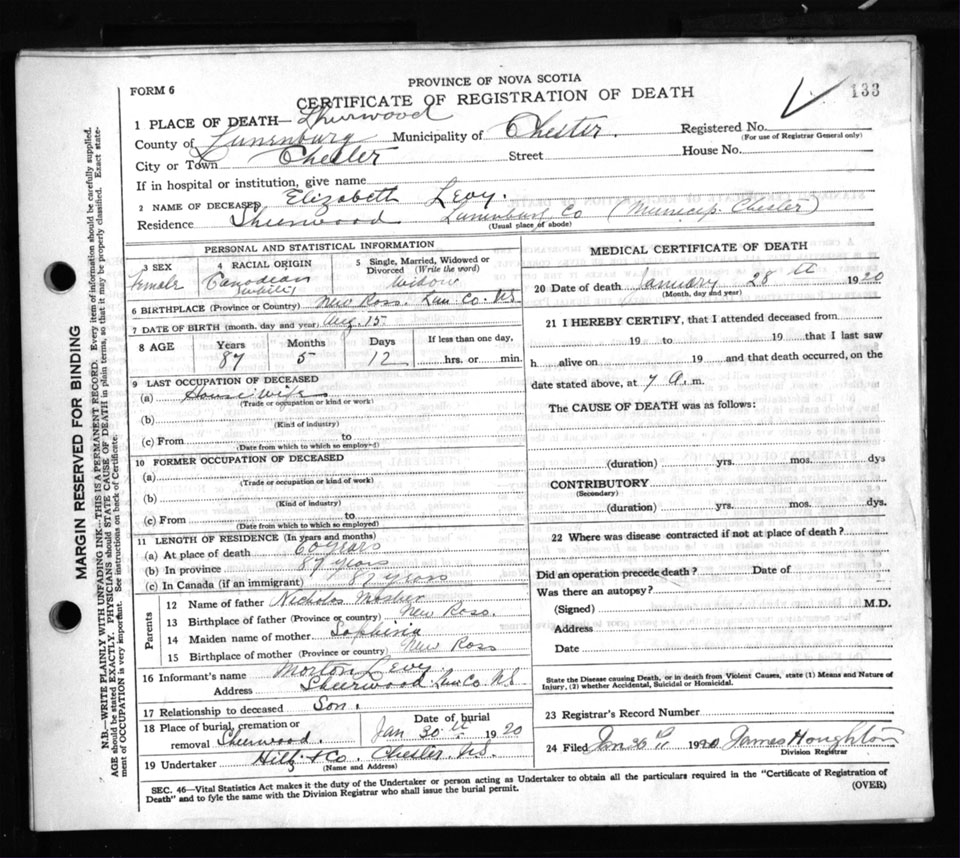 PROVINCE OF NOVA SCOTIA
FORM 6
CERTIFICATE OF REGISTRATION OF DEATH
133
1 PLACE OF DEATH— Sherwood
County of Lunenburg Municipality of Chester. Registered No.
(For use of Registrar General only)
City or Town Chester Street House No.
If in hospital or institution, give name
2 NAME OF DECEASED Elizabeth Levy.
Residence Sheerwood Lunenburg Co (Municip. Chester)
(Usual place of abode)
PERSONAL AND STATISTICAL INFORMATION
3 SEX 4 RACIAL ORIGIN 5 Single, Married, Widowed or Divorced (Write the word)
Female Canadian (white) Widow
6 BIRTHPLACE (Province or Country) New Ross. Lun. Co. N.S
7 DATE OF BIRTH (month, day and year) Aug. 15
8 AGE Years Months Days If less than one day,
87 5 12 hrs. or min.
9 LAST OCCUPATION OF DECEASED
(a) House wife
(Trade or occupation or kind or work)
(b)
(Kind of industry)
(c) From to
(Date from which to which so employed)
10 FORMER OCCUPATION OF DECEASED
(a)
(Trade or occupation or kind of work)
(b)
(Kind of industry)
(c) From to
(Date from which to which so employed)
11 LENGTH OF RESIDENCE (In years and months)
(a) At place of death 60 years
(b) In province 87 years
(c) In Canada (if an immigrant) 87 years
Parents
12 Name of father Nicholas Mosher
13 Birthplace of father (Province or country) New Ross.
14 Maiden name of mother Sophinia
15 Birthplace of mother (Province or country) New Ross
16 Informant's name Morton Levy
Address Sheerwood Lun Co. N.S
17 Relationship to deceased Son.
18 Place of burial, cremation or removal Sheerwood. Date of burial Jan 30th 1920
19 Undertaker Hiltz & Co. Chester N.S.
(Name and Address)
MEDICAL CERTIFICATE OF DEATH
20 Date of death January 28th 1920
(Month, day and year)
21 I HEREBY CERTIFY, that I attended deceased from
19 to 19 that I last saw
h alive on 19 and that death occurred, on the
date stated above, at 7 A. m.
The CAUSE OF DEATH was as follows:
(duration) yrs. mos. dys
CONTRIBUTORY
(Secondary)
(duration) yrs. mos. dys.
22 Where was disease contracted if not at place of death?
Did an operation precede death? Date of
Was there an autopsy?
(Signed) M.D.
Address
Date
State the Disease causing Death, or in death from Violent Causes, state (1) Means and Nature of Injury, (2) whether Accidental, Suicidal or Homicidal.
23 Registrar's Record Number
24 Filed Jan 30th 1920 James Houghton
Division Registrar
SEC. 46—Vital Statistics Act makes it the duty of the Undertaker or person acting as Undertaker to obtain all the particulars required in the "Certificate of Registration of
Death" and to fyle the same with the Division Registrar who shall issue the burial permit.
(OVER)
MARGIN RESERVED FOR BINDING
N.B.—WRITE PLAINLY WITH UNFADING INK—THIS IS A PERMANENT RECORD. Every item of information should be carefully supplied.
AGE should be stated EXACTLY. PHYSICIANS should STATE CAUSE OF DEATH in plain terms, so that it may be properly classified. Exact state-
ment of OCCUPATION is very important. See instructions on back of Certificate.